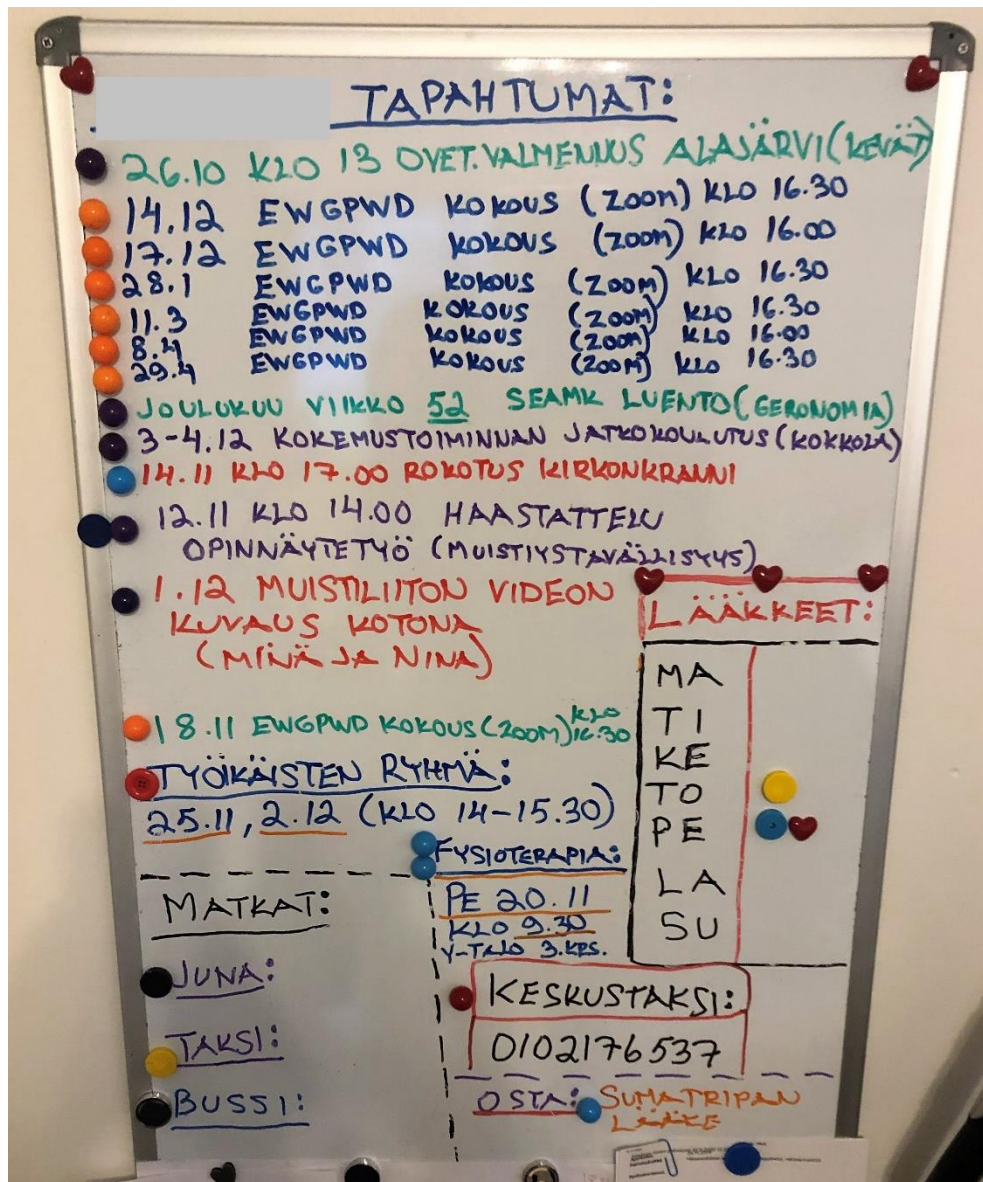 TAPAHTUMAT:
26.10 KLO 13 OVET.VALMENNUS ALAJÄRVI (KEVÄT)
14.12 EWGPWD KOKOUS (ZOOM) KLO 16.30
17.12 EWGPWD KOKOUS (ZOOM) KLO 16.00
28.1 EWGPWD KOKOUS (ZOOM) KLO 16.30
11.3 EWGPWD KOKOUS (ZOOM) KLO 16.30
8.4 EWGPWD KOKOUS (ZOOM) KLO 16.00
29.4 EWGPWD KOKOUS (ZOOM) KLO 16.30
JOULUKUU VIIKKO 52 SEAMK LUENTO (GERONOMIA)
3-4.12 KOKEMUSTOIMINNAN JATKOKOULUTUS (KOKKOLA)
14.11 KLO 17.00 ROKOTUS KIRKONKRANNI
12.11 KLO 14.00 HAASTATTELU
OPINNÄYTETYÖ (MUISTIYSTAVÄLLISYYS)
1.12 MUISTILIITON VIDEON
KUVAUS KOTONA
(MINÄ JA NINA)
18.11 EWGPWD KOKOUS (ZOOM) KLO 16.30
TYÖIKÄISTEN RYHMÄ:
25.11, 2.12 (KLO 14-15.30)
LÄÄKKEET:
MA
TI
KE
TO
PE
LA
SU
FYSIOTERAPIA:
PE 20.11
KLO 9.30
Y-TALO 3.KRS.
MATKAT:
JUNA:
TAKSI:
BUSSI:
KESKUSTAKSI:
0102176537
OSTA: SUMATRIPAN
LÄÄKE